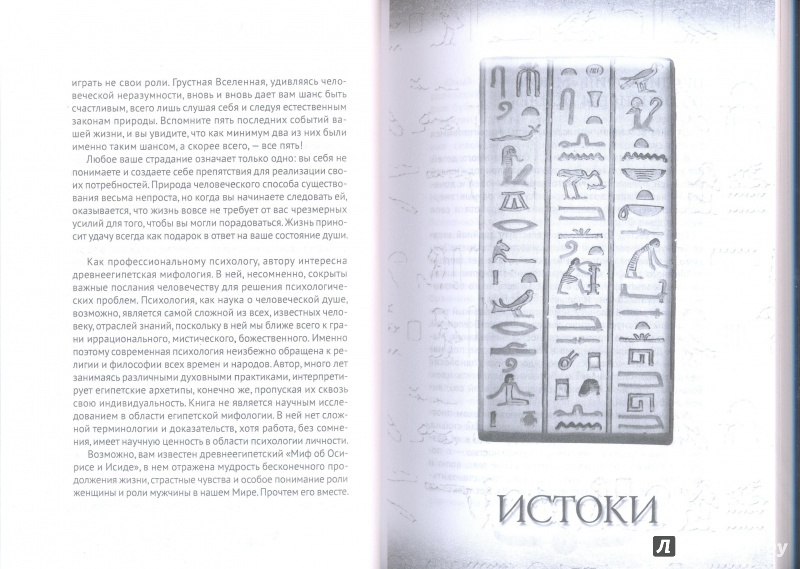 играть не свои роли. Грустная Вселенная, удивляясь чело-
веческой неразумности, вновь и вновь дает вам шанс быть
счастливым, всего лишь слушая себя и следуя естественным
законам природы. Вспомните пять последних событий ва-
шей жизни, и вы увидите, что как минимум два из них были
именно таким шансом, а скорее всего, — все пять!
Любое ваше страдание означает только одно: вы себя не
понимаете и создаете себе препятствия для реализации сво-
их потребностей. Природа человеческого способа существо-
вания весьма непроста, но когда вы начинаете следовать ей,
оказывается, что жизнь вовсе не требует от вас чрезмерных
усилий для того, чтобы вы могли порадоваться. Жизнь прино-
сит удачу всегда как подарок в ответ на ваше состояние души.
Как профессиональному психологу, автору интересна
древнеегипетская мифология. В ней, несомненно, сокрыты
важные послания человечеству для решения психологиче-
ских проблем. Психология, как наука о человеческой душе,
возможно, является самой сложной из всех, известных чело-
веку, отраслей знаний, поскольку в ней мы ближе всего к гра-
ни иррационального, мистического, божественного. Именно
поэтому современная психология неизбежно обращена к ре-
лигии и философии всех времен и народов. Автор, много лет
занимаясь различными духовными практиками, интерпрети-
рует египетские архетипы, конечно же, пропуская их сквозь
свою индивидуальность. Книга не является научным иссле-
дованием в области египетской мифологии. В ней нет слож-
ной терминологии и доказательств, хотя работа, без сомне-
ния, имеет научную ценность в области психологии личности.
Возможно, вам известен древнеегипетский «Миф об Оси-
рисе и Исиде», в нем отражена мудрость бесконечного про-
должения жизни, страстные чувства и особое понимание роли
женщины и роли мужчины в нашем Мире. Прочтем его вместе.
ИСТОКИ
Л